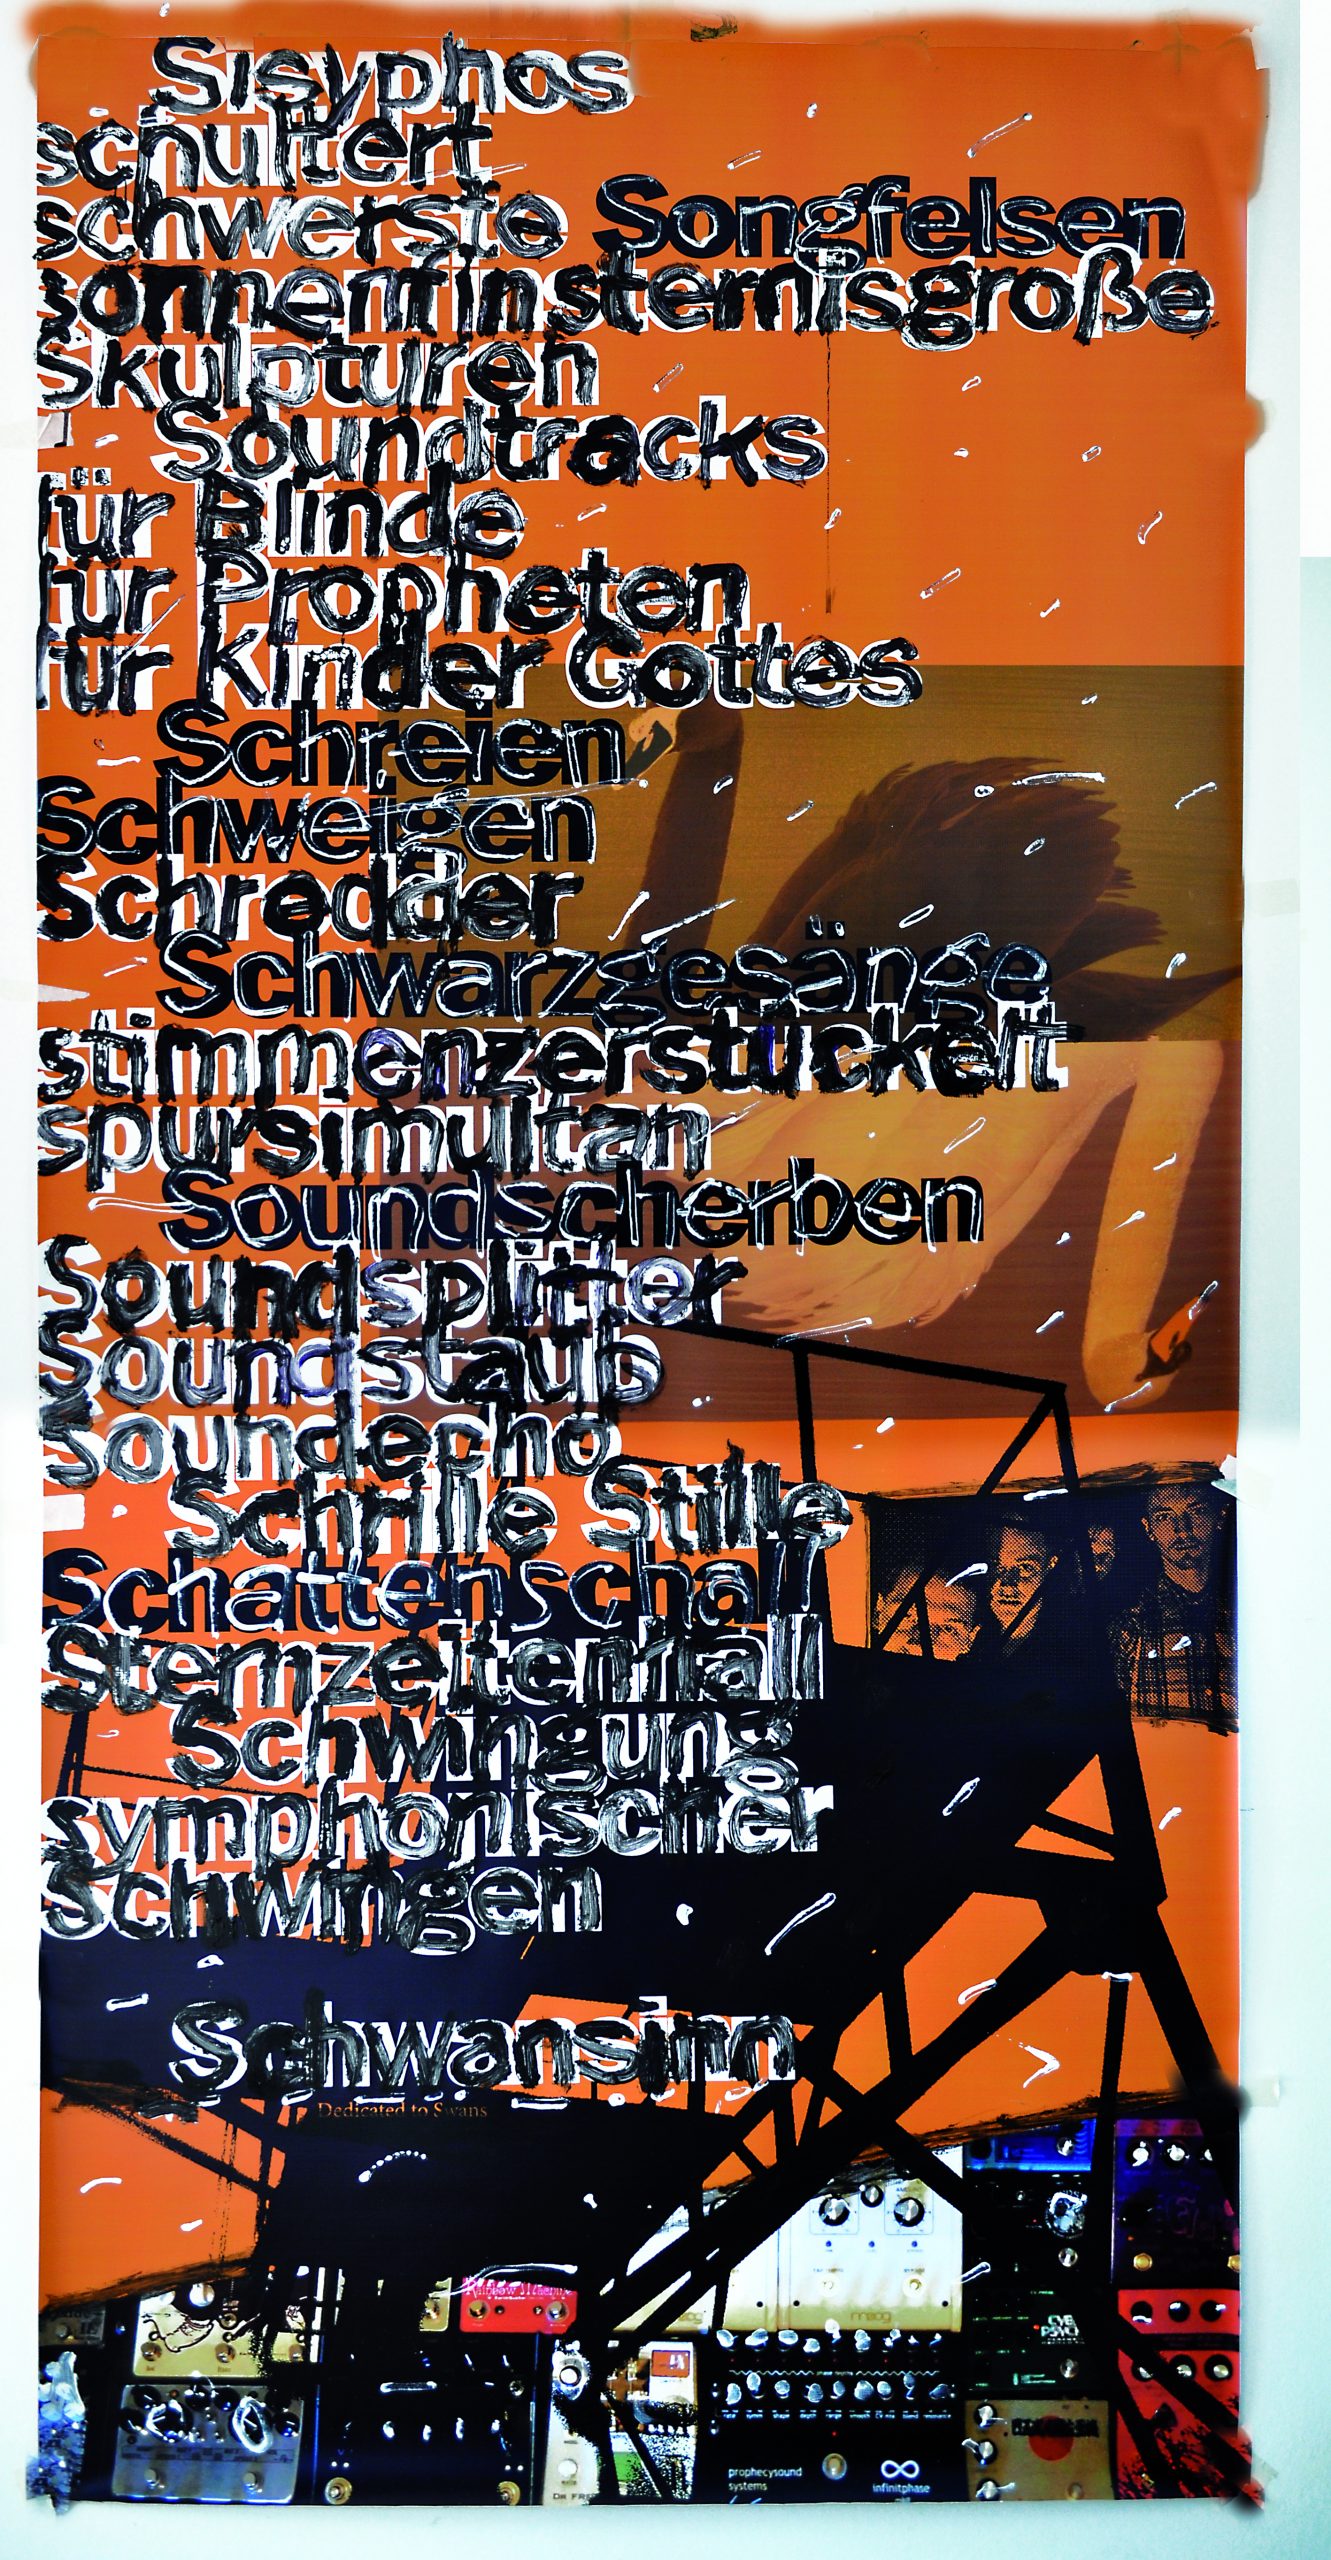 Sisyphos
schultert
schwerste Songfelsen
sonnenfinsternisgroße
Skulpturen
Soundtracks
für Blinde
für Propheten
für Kinder Gottes
Schreien
Schweigen
Schredder
Schwarzgesänge
stimmenzerstückelt
spursimultan
Soundscherben
Soundsplitter
Soundstaub
Soundecho
Schrille Stille
Schattenschall
Sternzeitenhall
Schwingung
symphonischer
Schwingen
Schwansinn
Dedicated to Swans
Rainbow Machine
moog
prophecysound
systems
infinitphase